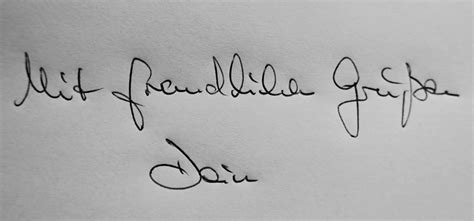 Mit freundlichen Grüßen
Dein